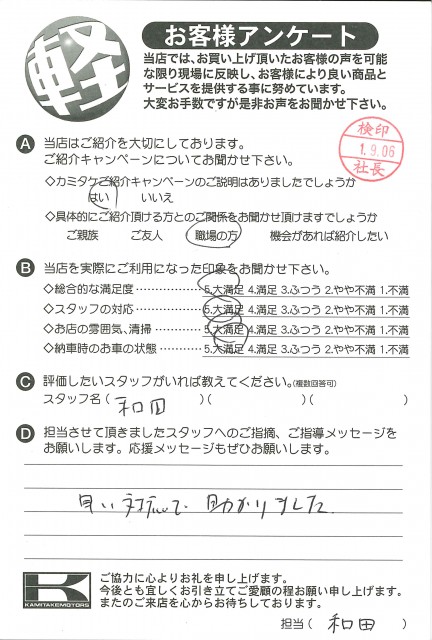 軽
お客様アンケート
当店では、お買い上げ頂いたお客様の声を可能
な限り現場に反映し、お客様により良い商品と
サービスを提供する事に努めています。
大変お手数ですが是非お声をお聞かせ下さい。
検印
1.9.06
社長
A 当店はご紹介を大切にしております。
ご紹介キャンペーンについてお聞かせ下さい。
◇カミタケご紹介キャンペーンのご説明はありましたでしょうか
はい いいえ
◇具体的にご紹介頂ける方とのご関係をお聞かせ頂けますでしょうか
ご親族 ご友人 職場の方 機会があれば紹介したい
B 当店を実際にご利用になった印象をお聞かせ下さい。
◇総合的な満足度……………5.大満足 4.満足 3.ふつう 2.やや不満 1.不満
◇スタッフの対応……………5.大満足 4.満足 3.ふつう 2.やや不満 1.不満
◇お店の雰囲気、清掃…………5.大満足 4.満足 3.ふつう 2.やや不満 1.不満
◇納車時のお車の状態…………5.大満足 4.満足 3.ふつう 2.やや不満 1.不満
C 評価したいスタッフがいれば教えてください。(複数回答可)
スタッフ名( 和田 )( )( )
D 担当させて頂きましたスタッフへのご指摘、ご指導メッセージを
お願いします。応援メッセージもぜひお願いします。
良い対応で助かりました
K
KAMITAKEMOTORS
ご協力に心よりお礼を申し上げます。
今後とも宜しくお引き立てご愛顧の程お願い申し上げます。
またのご来店を心からお待ちしております。
担当( 和田 )